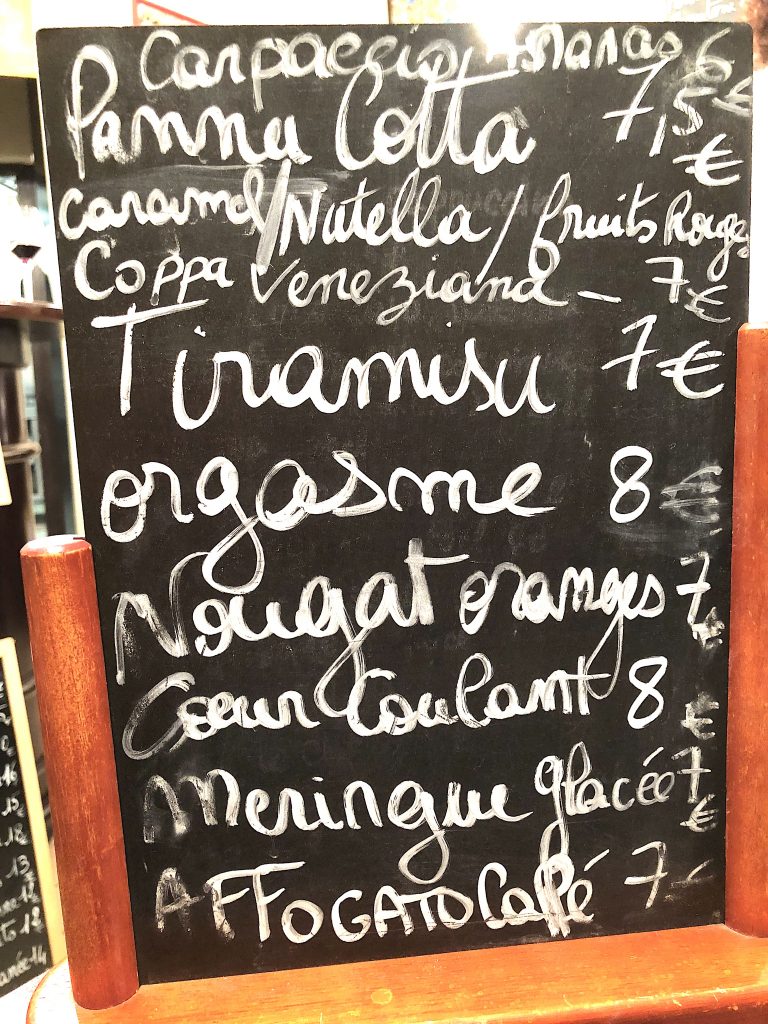 Carpaccio Ananas 6 €
Panna Cotta 7,5 €
caramel/Nutella/fruits Rouges
Coppa Veneziana - 7 €
Tiramisu 7 €
orgasme 8 €
Nougat oranges 7 €
Cœur Coulant 8 €
Meringue glacée 7 €
AFFOGATO Caffé 7